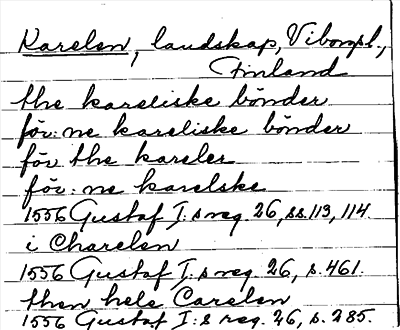 Karelen, landskap, Viborgsl.,
Finland
the kareliske bönder
för: ne kareliske bönder
för the kareler
för: ne karelske
1556 Gustaf I:s reg. 26, ss. 113, 114.
i Charelen
1556 Gustaf I:s reg. 26, s. 461.
then hele Carelen
1556 Gustaf I:s reg. 26, s. 285.